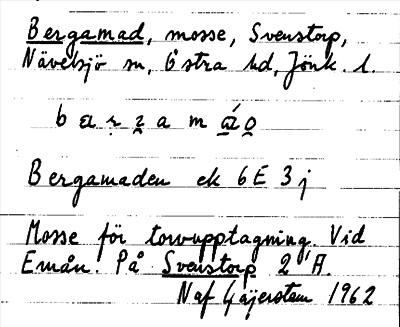 Bergamad, mosse, Svenstorp,
Nävelsjö sn, Östra hd, Jönk. l.
Bergamaden ek 6E 3j
Mosse för torvupptagning. Vid
Emån. På Svenstorp 2 A.
Naf 1962